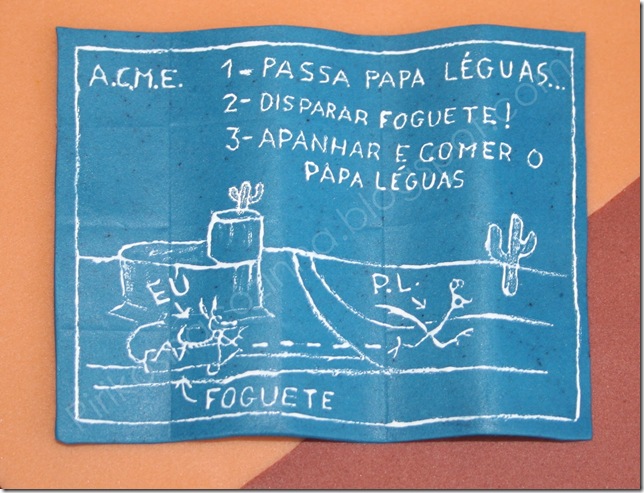 A.C.M.E.
1- PASSA PAPA LÉGUAS...
2- DISPARAR FOGUETE!
3- APANHAR E COMER O
PAPA LÉGUAS
EU
P.L.
FOGUETE